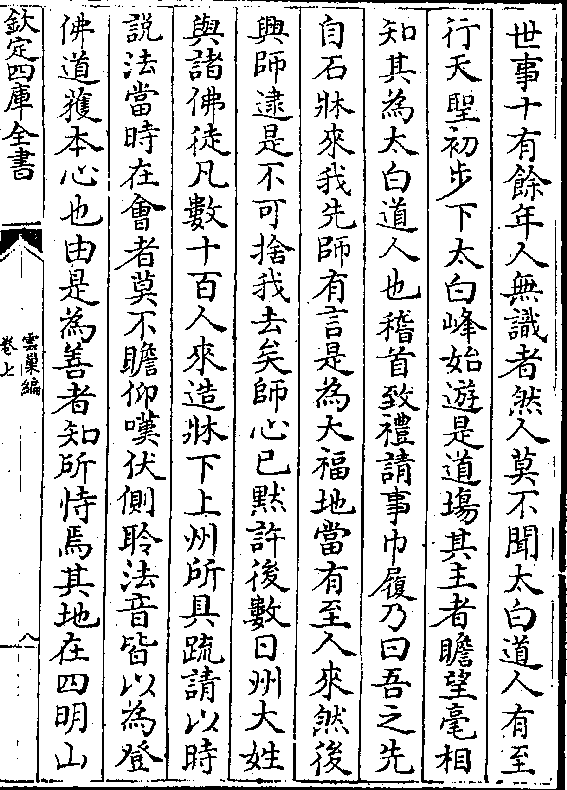 世事十有餘年人無識者然人莫不聞太白道人有至
行天聖初步下太白峰始遊是道場其主者瞻望毫相
知其為太白道人也稽首致禮請事巾屨乃曰吾之先
自石牀來我先師有言是為大福地當有至人來然後
興師逮是不可捨我去矣師心已黙許後數日州大姓
與諸佛徒凡數十百人來造牀下上州所具疏請以時
說法當時在會者莫不瞻仰嘆伏側聆法音皆以為登
佛道獲本心也由是為善者知所恃焉其地在四明山
欽定四庫全書
雲巢編
卷七
八